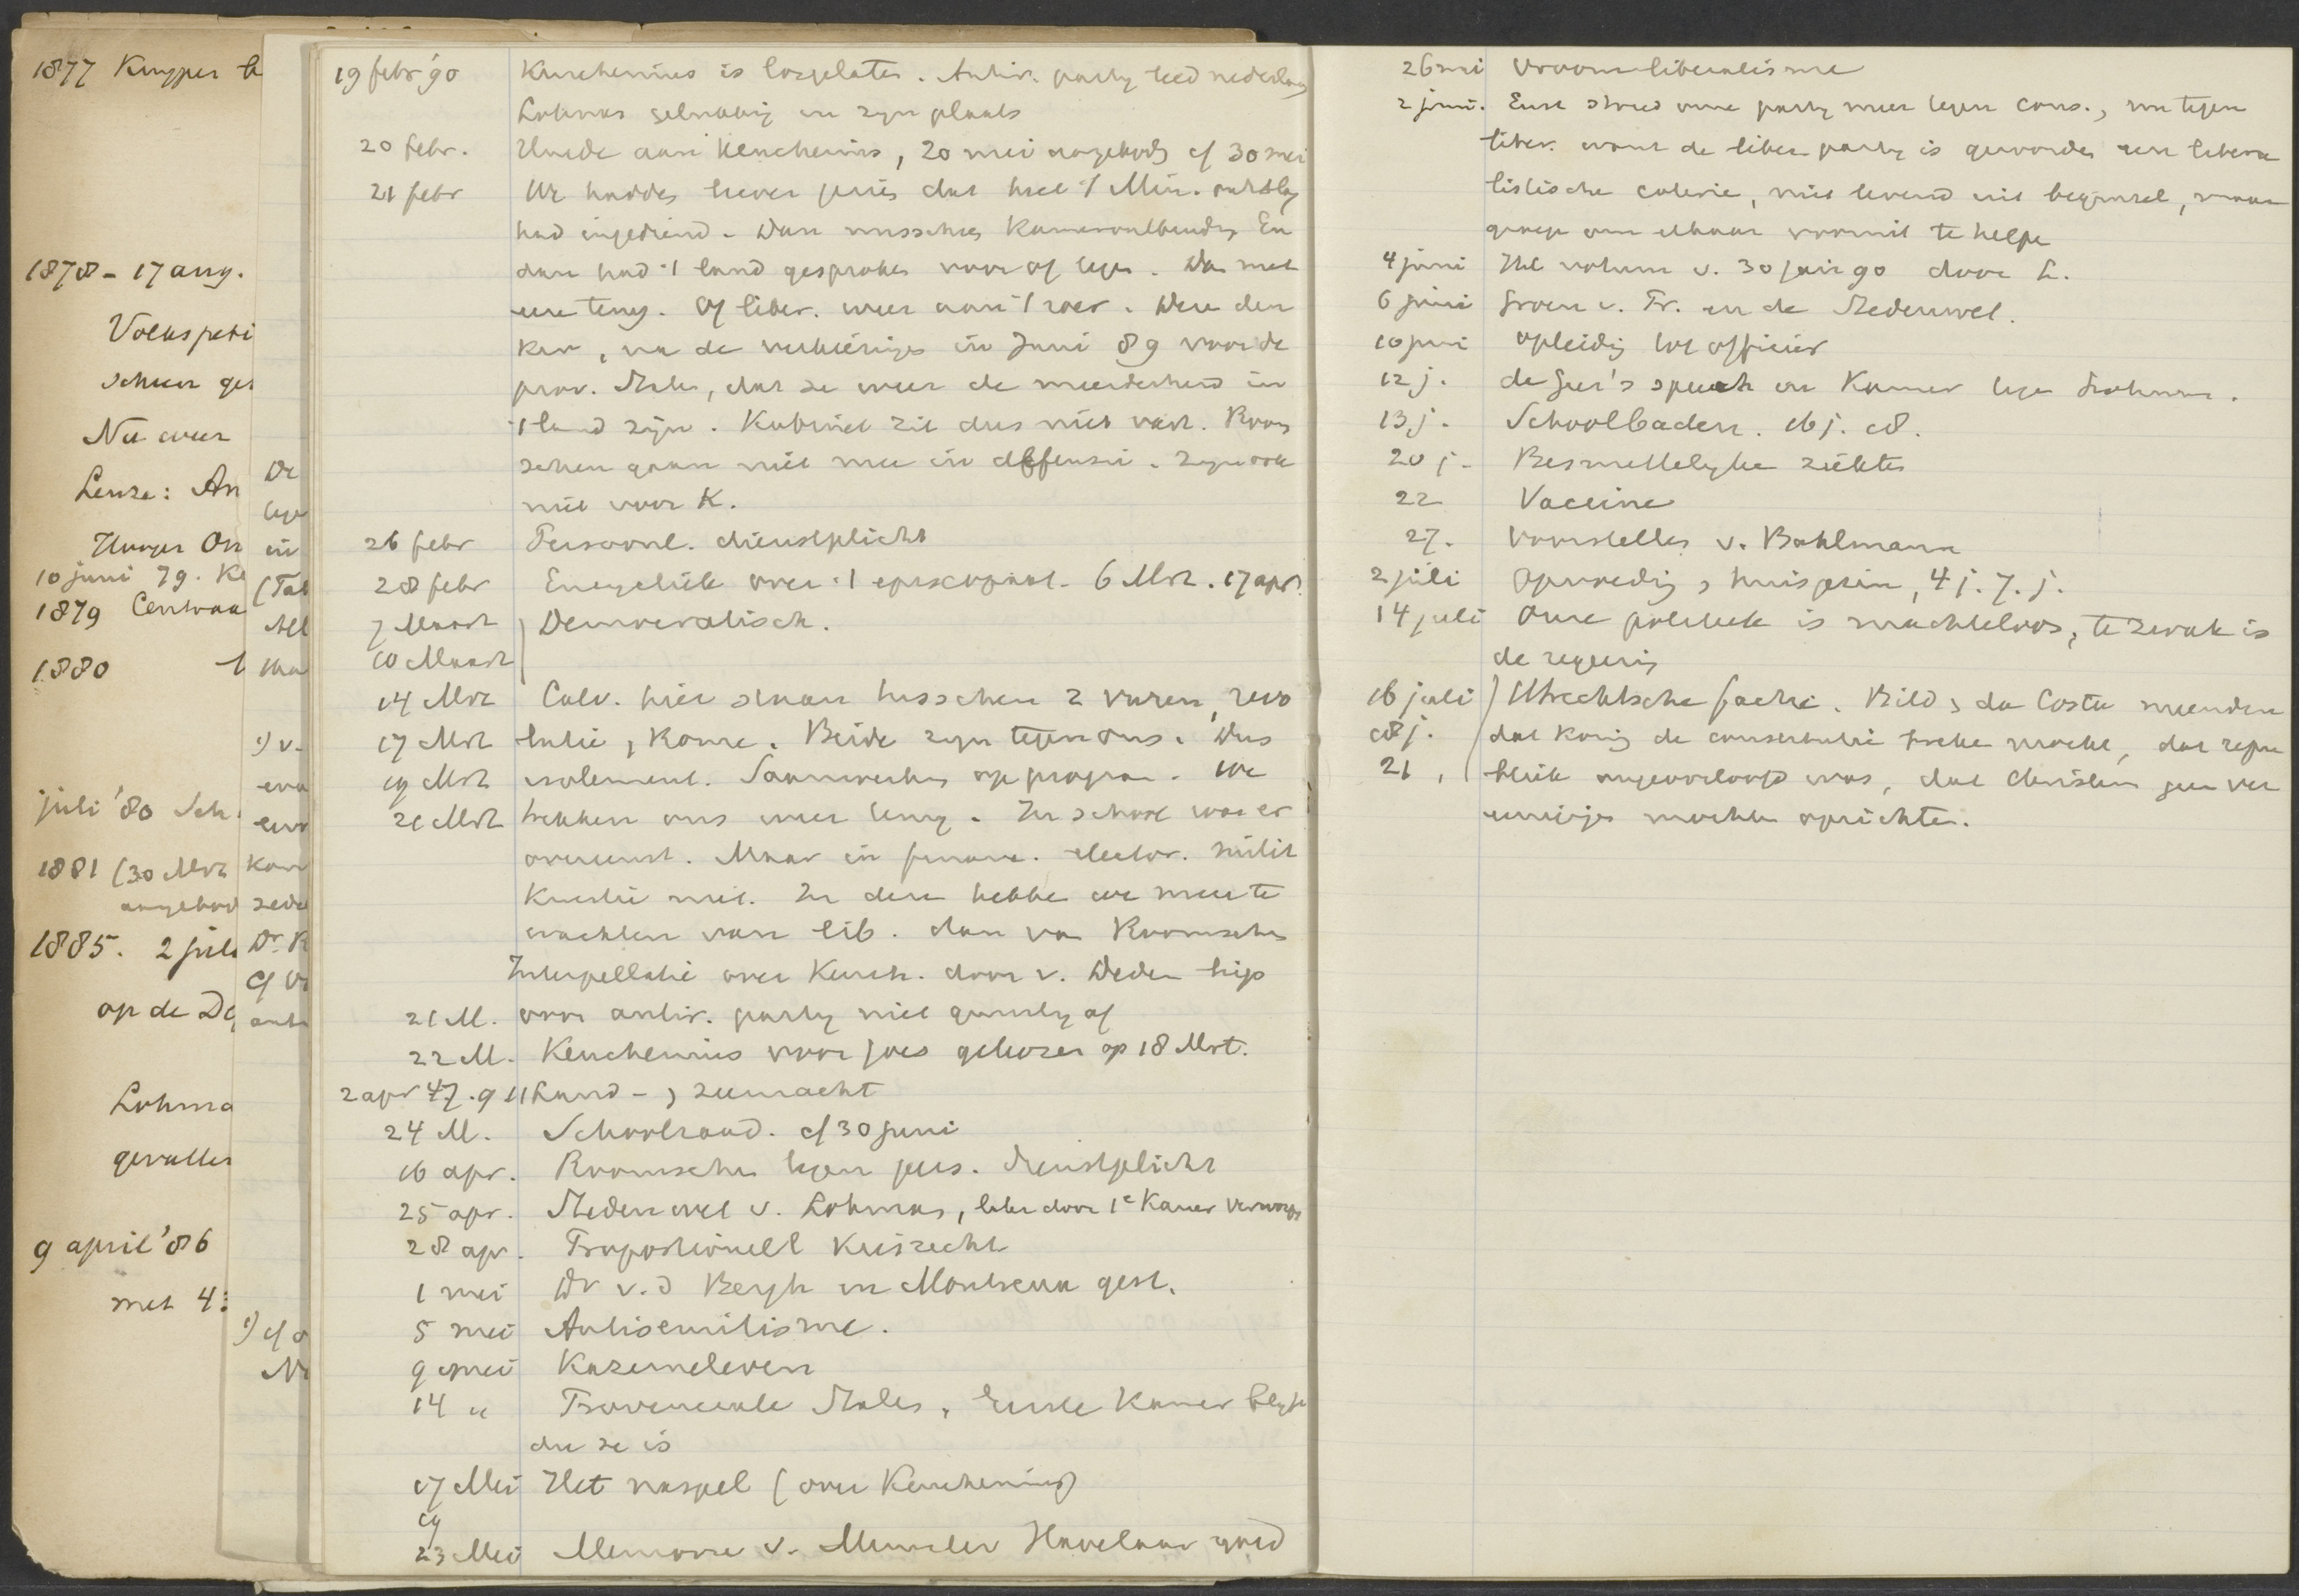 1877 Kuyper b
1878 - 17 aug.
Volkspeti
Nu weer
Leuze: An
10 juni 79. Ke
1879 Centraa
1880
juli '80 Sch
1881 (30 Mrt
aangebod
1885. 2 juli
op de De
Lohma
gevallen
9 april '86
met 4
De
in
(Tak
All
1) v.
kan
zede
Dr K
cf
1) cf
19 febr '90 Keuchenius is losgelaten. Antir. party leed nederlaag
Lohman gelukkig in zyn plaats
20 febr. Hulde aan Keuchenius, 20 mei aangeboden cf 30 mei
21 febr We hadden liever gezien dat heel 't Min. ontslag
had ingediend. Dan misschien Kamerontbinding. En
dan had 't land gesproken voor of tegen. Da met
een terug. Of liber. weer aan 't roer. Deze den
ken, na de verkiezingen in Juni 89 voor de
prov. Staten, dat ze weer de meerderheid in
't land zyn. Kabinet zit dus niet vast. Room
schen gaan niet mee in defensie. Zyn ook
niet voor K.
26 febr Persoonl. dienstplicht
28 febr Encycliek over 't episcopaat. 6 Mrt. 17 apr.
7 Maart Democratisch.
10 Maart
14 Mrt Calv. hier staan tusschen 2 vuren, revo
17 Mrt lutie, Rome. Beide zyn tegen ons. Dus
19 Mrt isolement. Samenwerken op program. We
21 Mrt trekken ons weer terug. In school was er
overeenst. Maar in financ. elector. milit
kwestie niet. In deze hebben we meer te
wachten van lib. dan van Roomschen
Interpellatie over Keuch. door v. Dedem liep
21 M. voor antir. party niet gunstig af
22 M. Keuchenius voor Goes gekozen op 18 Mrt.
2 apr 4.7.9.11 Land- , zeemacht
24 M. Schoolraad. cf 30 juni
16 apr. Roomschen tegen pers. dienstplicht
25 apr. Stedenwet v. Lohman, later door 1e Kamer verworpen
28 apr. Proportioneel Kiesrecht
1 mei Dr v.d Bergh in Montreux gest.
5 mei Antisemitisme.
9 mei Kazerneleven
14 " Provinciale Staten, Eerste Kamer blyft
die ze is
17 Mei Het naspel (over Keuchenius)
19
23 Mei Memorie v. Minister Havelaar goed
26 mei Vroom liberalisme
2 juni. Eerst streed onze party meer tegen cons., nu tegen
liber. want de liber. party is geworden een libera
listische coterie, niet levend uit beginsel, maar
groep om elkaar vooruit te helpen
4 juni Het votum v. 30 juni 90 door L.
6 juni Groen v. Pr. en de Stedenwet.
10 juni opleiding tot officier
12 j. de Geer's speech in Kamer tegen Lohman.
13 j. Schoolbaden. 16 j. 18.
20 j. Besmettelyke ziekten
22 Vaccine
27. Voorstellen v. Bahlmann
2 juli opvoeding , huisgezin, 4 j. 7. j.
14 juli Onze politiek is machteloos, te zwak is
de regeering
16 juli Utrechtsche fractie. Bild , da Costa meenden
18 j. dat Koning de constitutie breken mocht, dat repu
21 , bliek ongeoorloofd was, dat Christen geen ver
eenigingen mochten oprichten.